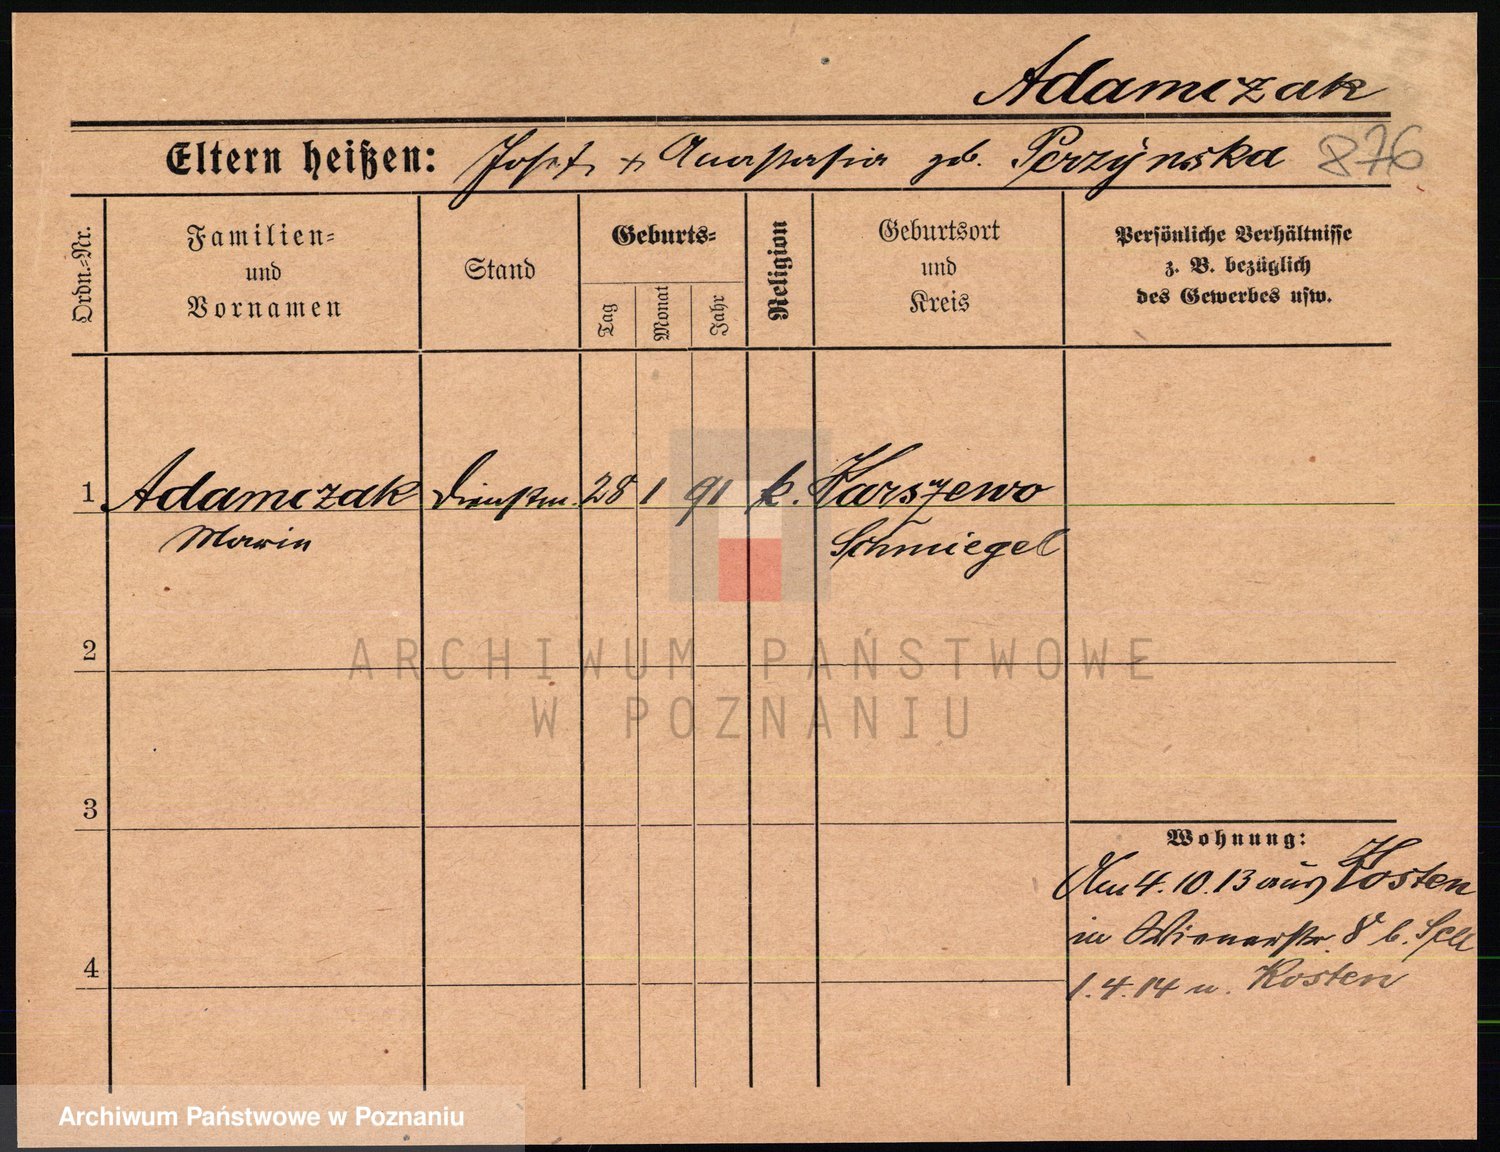 Adamczak
Eltern heißen: Josef, + Anastasia geb. Perzýnska 876
Ordn.-Nr.
Familien-
und
Vornamen
Stand
Geburts-
Tag
Monat
Jahr
Religion
Geburtsort
und
Kreis
Persönliche Verhältnisse
z. B. bezüglich
des Gewerbes usw.
1 Adamczak Dienstm. 28 1 91 k. Karszewo
Maria Schmiegel
ARCHIWUM PAŃSTWOWE
W POZNANIU
2
3
Wohnung:
Am 4.10.13 aus Kosten
in Wienerstr. 8 b.
4
1.4.14 n. Kosten
Archiwum Państwowe w Poznaniu